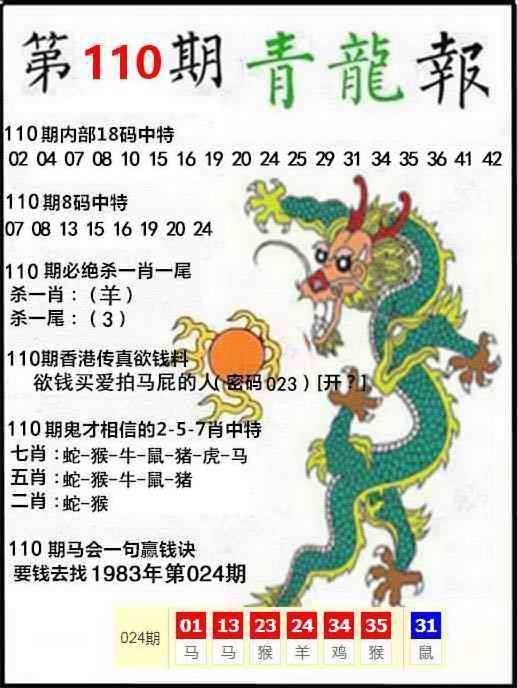 第110期青龍報
110期内部18码中特
02 04 07 08 10 15 16 19 20 24 25 29 31 34 35 36 41 42
110期8码中特
07 08 13 15 16 19 20 24
110期必绝杀一肖一尾
杀一肖：（羊）
杀一尾：（3）
110期香港传真欲钱料
欲钱买爱拍马屁的人(密码023)[开？]
110期鬼才相信的2-5-7肖中特
七肖：蛇-猴-牛-鼠-猪-虎-马
五肖：蛇-猴-牛-鼠-猪
二肖：蛇-猴
110期马会一句赢钱诀
要钱去找1983年第024期
024期 01 13 23 24 34 35 31
马 马 猴 羊 鸡 猴 鼠